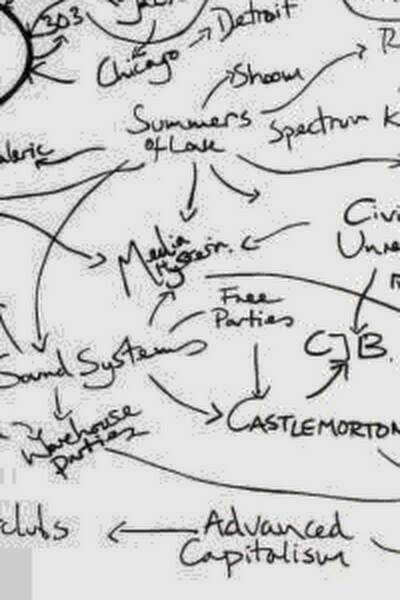 303
Detroit
Chicago
Shoom
Summers
of Love
Spectrum K
aleric
Civi
Unre
Media
Hystein.
Free
Parties
CJB.
Sound Systems
CASTLEMORTON
Warehouse
Parties
clubs
Advanced
Capitalism